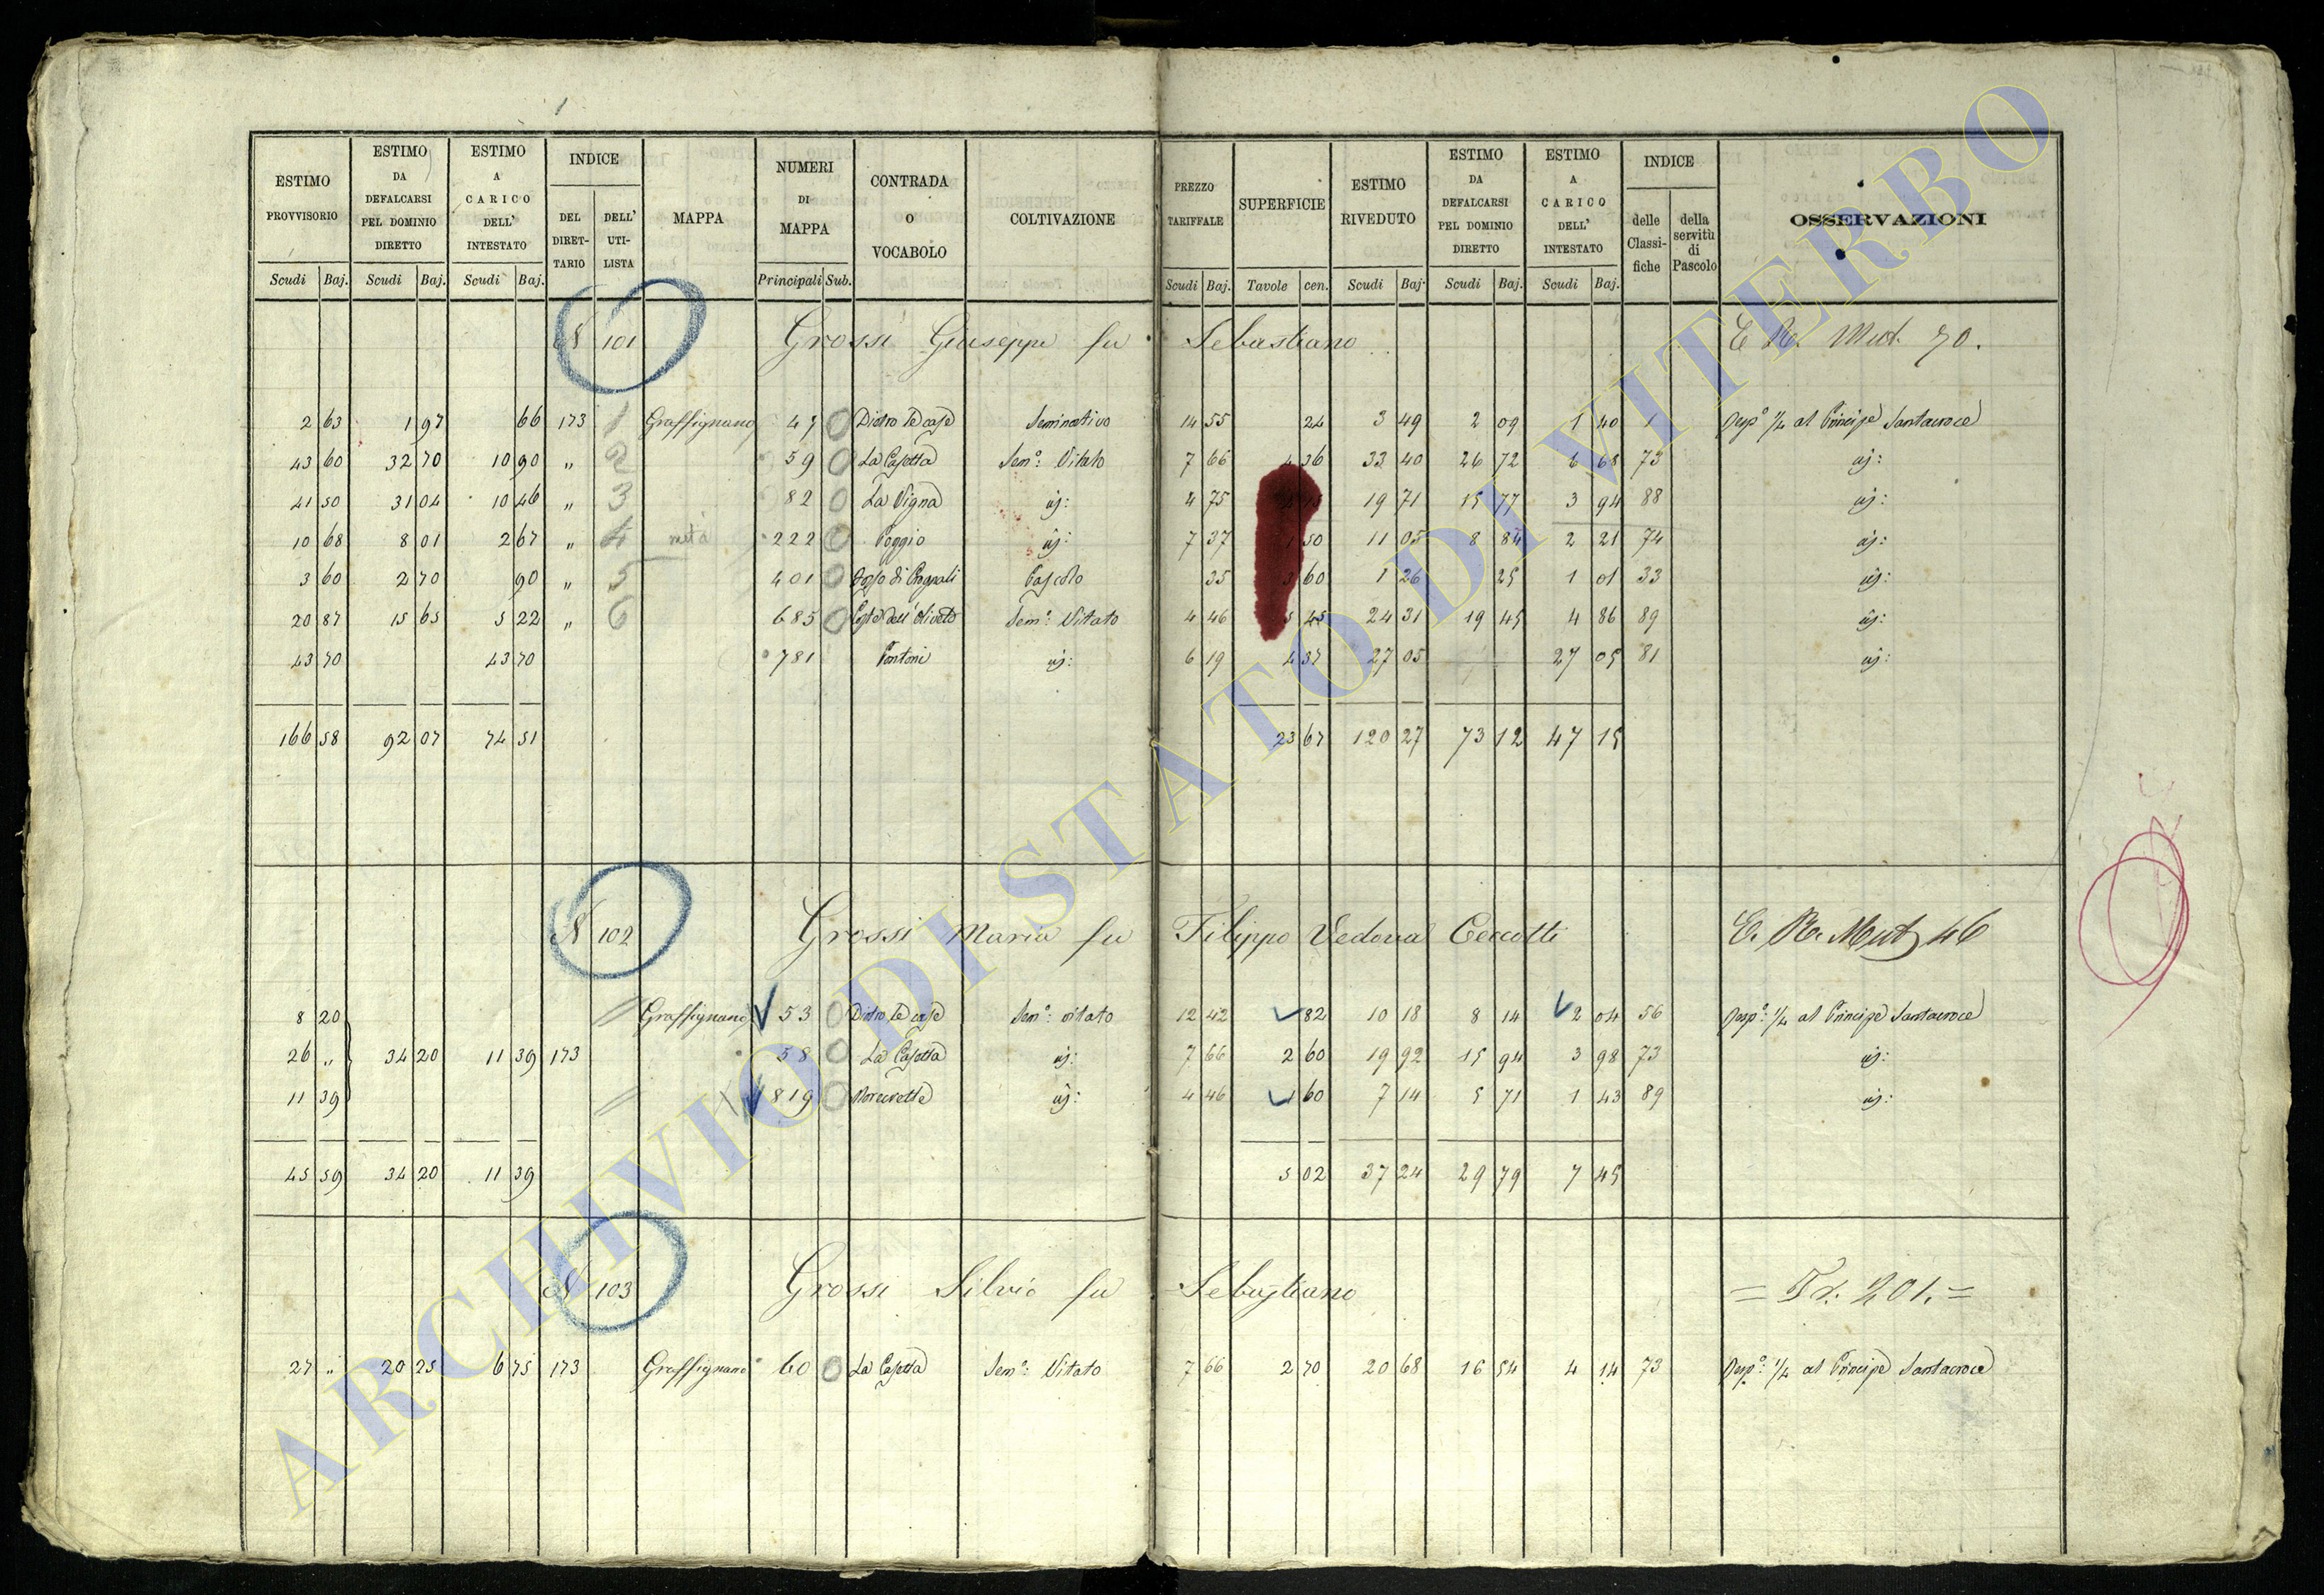 ESTIMO PROVVISORIO | ESTIMO DA DEFALCARSI PEL DOMINIO DIRETTO | ESTIMO A CARICO DELL' INTESTATO | INDICE | MAPPA | NUMERI DI MAPPA | CONTRADA O VOCABOLO | COLTIVAZIONE | PREZZO TARIFFALE | SUPERFICIE | ESTIMO RIVEDUTO | ESTIMO DA DEFALCARSI PEL DOMINIO DIRETTO | ESTIMO A CARICO DELL' INTESTATO | INDICE | OSSERVAZIONI
DEL DIRETTARIO | DELL' UTILISTA | delle Classifiche | della servitù di Pascolo
Scudi Baj. | Scudi Baj. | Scudi Baj. | Principali Sub. | Scudi Baj. | Tavole cen. | Scudi Baj. | Scudi Baj. | Scudi Baj.
N 101 Grossi Giuseppe fu Sebastiano E. R. Mut. 70.
2 63 | 1 97 | 66 | 173 | 1 | Graffignano | 47 | 0 | Dietro le case | Seminativo | 14 55 | 24 | 3 49 | 2 09 | 1 40 | 1 | Resp.e ¼ al Principe Santacroce
43 60 | 32 70 | 10 90 | " | 2 | 59 | 0 | La Casetta | Sem.o Vitato | 7 66 | 4 36 | 33 40 | 26 72 | 6 68 | 73 | id:
41 50 | 31 04 | 10 46 | " | 3 | 82 | 0 | La Vigna | id: | 4 75 | 4 15 | 19 71 | 15 77 | 3 94 | 88 | id:
10 68 | 8 01 | 2 67 | " | 4 | metà | 222 | 0 | Poggio | id: | 7 37 | 1 50 | 11 05 | 8 84 | 2 21 | 74 | id:
3 60 | 2 70 | 90 | " | 5 | 401 | 0 | di | Pascolo | 35 | 3 60 | 1 26 | 25 | 1 01 | 33 | id:
20 87 | 15 65 | 5 22 | " | 6 | 685 | 0 | dell' Oliveto | Sem.o Vitato | 4 46 | 5 45 | 24 31 | 19 45 | 4 86 | 89 | id:
43 70 | 43 70 | 781 | Pontoni | id: | 6 19 | 4 37 | 27 05 | 27 05 | 81 | id:
166 58 | 92 07 | 74 51 | 23 67 | 120 27 | 73 12 | 47 15
N 102 Grossi Maria fu Filippo Vedova Ceccotti E. R. Mut. 46
8 20 | Graffignano | 53 | 0 | Dietro le case | Sem.o vitato | 12 42 | 82 | 10 18 | 8 14 | 2 04 | 56 | Resp.e ¼ al Principe Santacroce
26 " | 34 20 | 11 39 | 173 | 58 | 0 | La Casetta | id: | 7 66 | 2 60 | 19 92 | 15 94 | 3 98 | 73 | id:
11 39 | 819 | 0 | id: | 4 46 | 1 60 | 7 14 | 5 71 | 1 43 | 89 | id:
45 59 | 34 20 | 11 39 | 5 02 | 37 24 | 29 79 | 7 45
N 103 Grossi Silvio fu Sebastiano = Tr: 201. =
27 " | 20 25 | 6 75 | 173 | Graffignano | 60 | 0 | La Casetta | Sem.o Vitato | 7 66 | 2 70 | 20 68 | 16 54 | 4 14 | 73 | Resp.e ¼ al Principe Santacroce
ARCHIVIO DI STATO DI VITERBO